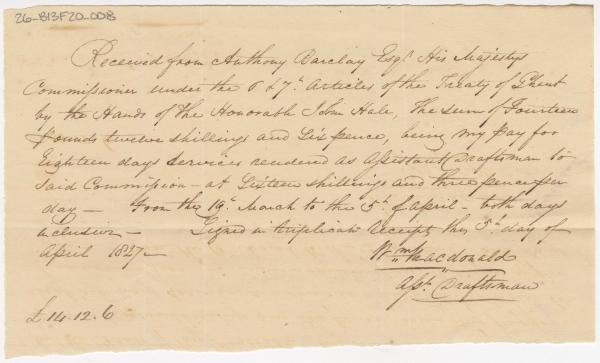 26-813F20-008
Received from Anthony Barclay Esqr. His Majestys
Commissioner under the 6 & 7th Articles of the Treaty of Ghent
by the Hands of the Honorable John Hale, the sum of Fourteen
Pounds twelve shillings and Six pence, being my pay for
Eighteen days Services rendered as Assistant Draftsman to
said Commission – at Sixteen shillings and three pence per
day — From the 19th. March to the 5th. of April – both days
inclusive — Signed in triplicate receipt this 5th day of
April 1827 —
Wm. Macdonald
Asst. Draftsman
£ 14.12.6